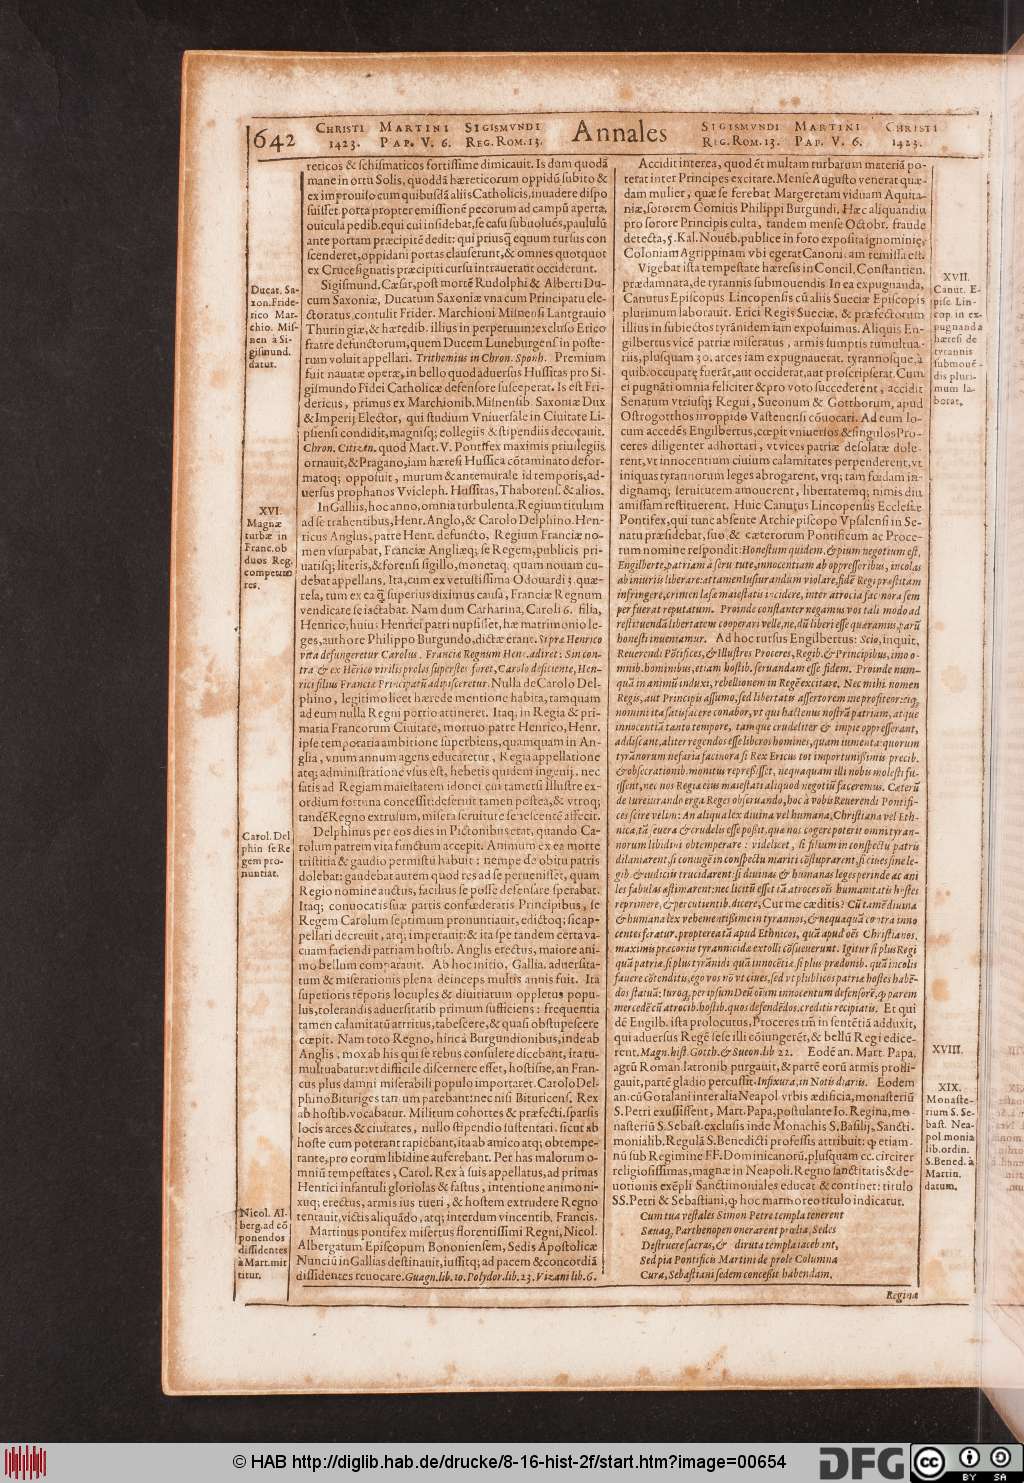 642
CHRISTI MARTINI SIGISMVNDI Annales SIGISMVNDI MARTINI CHRISTI
1423. PAP. V. 6. REG. ROM. 13. REG. ROM. 13. PAP. V. 6. 1423.
reticos & schismaticos fortissime dimicauit. Is dum quodā
mane in ortu Solis, quoddā hæreticorum oppidū subito &
ex improuiso cum quibusdā aliis Catholicis, inuadere dispo
suisset, porta propter emissionē pecorum ad campū aperta,
ouicula pedib. equi cui insidebat, se casu subuoluēs, paululū
ante portam præcipitē dedit: qui priusq̃ equum rursus con
scenderet, oppidani portas clauserunt, & omnes quotquot
ex Crucesignatis præcipiti cursu intrauerant occiderunt.
Sigismund. Cæsar, post mortē Rudolphi & Alberti Du-
cum Saxoniæ, Ducatum Saxoniæ vna cum Principatu ele-
ctoratus contulit Frider. Marchioni Misnensi Lantgrauio
Thuringiæ, & hæredib. illius in perpetuum: excluso Erico
fratre defunctorum, quem Ducem Luneburgens̄ in poste-
rum voluit appellari. Trithemius in Chron. Sponh. Premium
fuit nauatæ operæ, in bello quod aduersus Hussitas pro Si-
gismundo Fidei Catholicæ defensore susceperat. Is est Fri-
dericus, primus ex Marchionib. Misnensib. Saxoniæ Dux
& Imperij Elector, qui studium Vniuersale in Ciuitate Li-
psiensi condidit, magnisq; collegiis & stipendiis decorauit.
Chron. Citizen. quod Mart. V. Pontifex maximis priuilegiis
ornauit, & Pragano, iam hæresi Hussica cōtaminato defor-
matoq; opposuit, murum & antemurale id temporis, ad-
uersus prophanos Vvicleph. Hussitas, Thaborens. & alios.
In Galliis, hoc anno, omnia turbulenta. Regium titulum
ad se trahentibus, Henr. Anglo, & Carolo Delphino. Hen-
ricus Anglus, patre Henr. defuncto, Regium Franciæ no-
men vsurpabat, Franciæ Angliæq; se Regem, publicis pri-
uatisq; literis, & forensi sigillo, monetaq. quam nouam cu-
debat appellans. Ita, cum ex vetustissima Odouardi 3. quæ-
rela, tum ex ea q̃ superius diximus causa, Franciæ Regnum
vendicare se iactabat. Nam dum Catharina, Caroli 6. filia,
Henrico, huius Henrici patri nupsisset, hæ matrimonio le-
ges, authore Philippo Burgundo, dictæ erant. Si præ Henrico
vita defungeretur Carolus. Franciæ Regnum Hen. adiret: Sin con-
tra & ex Hērico virilis proles superstes foret, Carolo deficiente, Hen-
rici filius Franciæ Principatū adipisceretur. Nulla de Carolo Del-
phino, legitimo licet hærede mentione habita, tamquam
ad eum nulla Regni portio attineret. Itaq. in Regia & pri-
maria Francorum Ciuitate, mortuo patre Henrico, Henr.
ipse temporaria ambitione superbiens, quamquam in An-
glia, vnum annum agens educaretur, Regia appellatione
atq; administratione vsus est, hebetis quidem ingenij, nec
satis ad Regiam maiestatem idonei cui tametsi illustre ex-
ordium fortuna concessit: deseruit tamen postea, & vtroq;
tandē Regno extrusum, misera seruitute senescente affecit.
Delphinus per eos dies in Pictonibus erat, quando Ca-
rolum patrem vita functum accepit. Animum ex ea morte
tristitia & gaudio permistū habuit: nempe de obitu patris
dolebat: gaudebat autem quod res ad se peruenisset, quam
Regio nomine auctus, facilius se posse defensare sperabat.
Itaq; conuocatis suæ partis confœderatis Principibus, se
Regem Carolum septimum pronuntiauit, edictoq; sic ap-
pellari decreuit, atq; imperauit: & ita spe tandem certa va-
cuam faciendi patriam hostib. Anglis erectus, maiore ani-
mo bellum comparauit. Ab hoc initio, Gallia, aduersita-
tum & miserationis plena deinceps multis annis fuit. Ita
superioris tēporis locuples & diuitiarum oppletus popu-
lus, tolerandis aduersitatib. primum sufficiens: frequentia
tamen calamitatū attritus, tabescere, & quasi obstupescere
cœpit. Nam toto Regno, hinc à Burgundionibus, inde ab
Anglis, mox ab his qui se rebus consulere dicebant, ita tu-
multuabatur: vt difficile discernere esset, hostisne, an Fran-
cus plus damni miserabili populo importaret. Carolo Del-
phino Bituriges tantum parebant: nec nisi Bituricens̄. Rex
ab hostib. vocabatur. Militum cohortes & præfecti, sparsis
locis arces & ciuitates, nullo stipendio sustentati, sicut ab
hoste cum poterant rapiebant, ita ab amico atq; obtempe-
rante, pro eorum libidine auferebant. Per has malorum o-
mniū tempestates, Carol. Rex à suis appellatus, ad primas
Henrici infantuli gloriolas & fastus, intentione animo ni-
xuq; erectus, armis ius tueri, & hostem extrudere Regno
tentauit, victis aliquādo, atq; interdum vincentib. Francis.
Martinus pontifex misertus florentissimi Regni, Nicol.
Albergatum Episcopum Bononiensem, Sedis Apostolicæ
Nunciū in Gallias destinauit, iussitq; ad pacem & concordiā
dissidentes reuocare. Guagn. lib. 10. Polydor. lib. 23. Vizani lib. 6.
Ducat. Sa-
xon. Fride-
rico Mar-
chio. Mis-
nen à Si-
gismund.
datur.
XVI.
Magnæ
turbæ in
Franc. ob
duos Reg.
competito
res.
Carol. Del
phin se Re
gem pro-
nuntiat.
Nicol. Al-
berg. ad cō
ponendos
dissidentes
à Mart. mit
titur.
Accidit interea, quod & multam turbarum materiā po-
terat inter Principes excitare. Mense Augusto venerat quæ-
dam mulier, quæ se ferebat Margeretam viduam Aquita-
niæ, sororem Comitis Philippi Burgundi. Hæc aliquandiu
pro sorore Principis culta, tandem mense Octobr. fraude
detecta, 5. Kal. Nouēb. publice in foro exposita ignominię,
Coloniam Agrippinam vbi egerat Canonissam remissa est.
Vigebat ista tempestate hæresis in Concil. Constantien.
prædamnata, de tyrannis submouendis In ea expugnanda,
Canutus Episcopus Lincopensis cū aliis Sueciæ Episcopis
plurimum laborauit. Erici Regis Sueciæ, & præfectorum
illius in subiectos tyrānidem iam exposuimus. Aliquis En-
gilbertus vicē patriæ miseratus, armis sumptis tumultua-
riis, plusquam 30. arces iam expugnauerat, tyrannosque, à
quib. occupatę fuerāt, aut occiderat, aut proscripserat. Cum
ei pugnāti omnia feliciter & pro voto succederent, accidit
Senatum vtriusq; Regni, Sueonum & Gotthorum, apud
Ostrogotthos in oppido Vastenensi cōuocari. Ad eum lo-
cum accedēs Engilbertus, cœpit vniuersos & singulos Pro-
ceres diligenter adhortari, vt vices patriæ desolatæ dole-
rent, vt innocentium ciuium calamitates perpenderent, vt
iniquas tyrannorum leges abrogarent, vtq; tam fœdam in-
dignamq; seruitutem amouerent, libertatemq; nimis diu
amissam restituerent. Huic Canutus Lincopensis Ecclesiæ
Pontifex, qui tunc absente Archiepiscopo Vpsalensi in Se-
natu præsidebat, suo & cæterorum Pontificum ac Proce-
rum nomine respondit: Honestum quidem, & pium negotium est,
Engilberte, patriam à seruitute, innocentiam ab oppressoribus, incolas
ab iniuriis liberare: attamen iusiurandum violare, fidē Regi præstitam
infringere, crimen læsæ maiestatis incidere, inter atrocia facinora sem
per fuerat reputatum. Proinde constanter negamus vos tali modo ad
restituendā libertatem cooperari velle, ne, dū liberi esse quæramus, parū
honesti inueniamur. Ad hoc rursus Engilbertus: Scio, inquit,
Reuerendi Pōtifices, & Illustres Proceres, Regib. & Principibus, imo o-
mnib. hominibus, etiam hostib. seruandam esse fidem. Proinde num-
quā in animū induxi, rebellionem in Regē excitare. Nec mihi nomen
Regis, aut Principis assumo, sed libertatis assertorem me profiteor: eiq;
nomini ita satisfacere conabor, vt qui hactenus nostrā patriam, atque
innocentiā tanto tempore, tamque crudeliter & impie oppresserant,
addiscant, aliter regendos esse liberos homines, quam iumenta: quorum
tyrānorum nefaria facinora si Rex Ericus tot importunissimis precib.
& obsecrationib. monitus repressisset, nequaquam illi nobis molesti fu-
issent, nec nos Regiæ eius maiestati aliquod negotiū faceremus. Cæterū
de iureiurando erga Reges obseruando, hoc à vobis Reuerendi Pontifi-
ces scire velim: An aliqua lex diuina vel humana, Christiana vel Eth-
nica, tā seuera & crudelis esse possit, qua nos cogere poterit omni tyran-
norum libidini obtemperare: videlicet, si filium in conspectu patris
dilaniarent, si coniugē in conspectu mariti cōstuprarent, si ciues sine le-
gib. & iudiciis trucidarent: si diuinas & humanas leges perinde ac ani
les fabulas æstimarent: nec licitū esset tā atroces oīs humanitatis hostes
reprimere, & percutientib. dicere, Cur me cæditis? Cū tamē diuina
& humana lex vehementissime in tyrannos, & nequaquā contra inno
centes feratur. propterea tā apud Ethnicos, quā apud oēs Christianos.
maximis præconiis tyrannicidæ extolli cōsueuerunt. Igitur si plus Regi
quā patriæ, si plus tyrānidi quā innocētiæ, si plus prædonib. quā incolis
fauere cōtenditis, ego vos nō vt ciues, sed vt publicos patriæ hostes habē-
dos statuā: Iuroq; per ipsum Deū oīum innocentum defensorē, q parem
mercedē cū atrocib. hostib. quos defendēdos creditis recipiatis. Et qui
dē Engilb. ista prolocutus, Proceres tm̄ in sentētiā adduxit,
qui aduersus Regē sese illi cōiungerēt, & bellū Regi edice-
rent. Magn. hist. Gotth. & Sueon. lib 22. Eodē an. Mart. Papa,
agrū Roman. latronib. purgauit, & partē eorū armis profli-
gauit, partē gladio percussit. Infixura, in Notis diariis. Eodem
an. cū Gotalani inter alia Neapol. vrbis ædificia, monasteriū
S. Petri exussissent, Mart. Papa, postulante Io. Regina, mo-
nasteriū S. Sebast. exclusis inde Monachis S. Basilij, Sancti-
monialib. Regulā S. Benedicti professis attribuit: q etiam-
nū sub Regimine FF. Dominicanorū, plusquam cc. circiter
religiosissimas, magnæ in Neapoli. Regno sanctitatis & de-
uotionis exēpli Sanctimoniales educat & continet: titulo
SS. Petri & Sebastiani, q hoc marmoreo titulo indicatur.
Cum tua vestales Simon Petre templa tenerent
Sæuaq, Parthenopen onerarent prœlia, Sedes
Destruere sacras, & diruta templa iacebant,
Sed pia Pontificis Martini de prole Columna
Cura, Sebastiani sedem concessit habendam.
Reginæ
XVII.
Canut. E-
pisc. Lin-
cop. in ex-
pugnanda
hæresi de
tyrannis
submouē-
dis pluri-
mum la-
borat.
XVIII.
XIX.
Monaste-
rium S. Se-
bast. Nea-
pol monia
lib. ordin.
S. Bened. à
Martin.
datum.
© HAB http://diglib.hab.de/drucke/8-16-hist-2f/start.htm?image=00654
DFG
cc BY SA